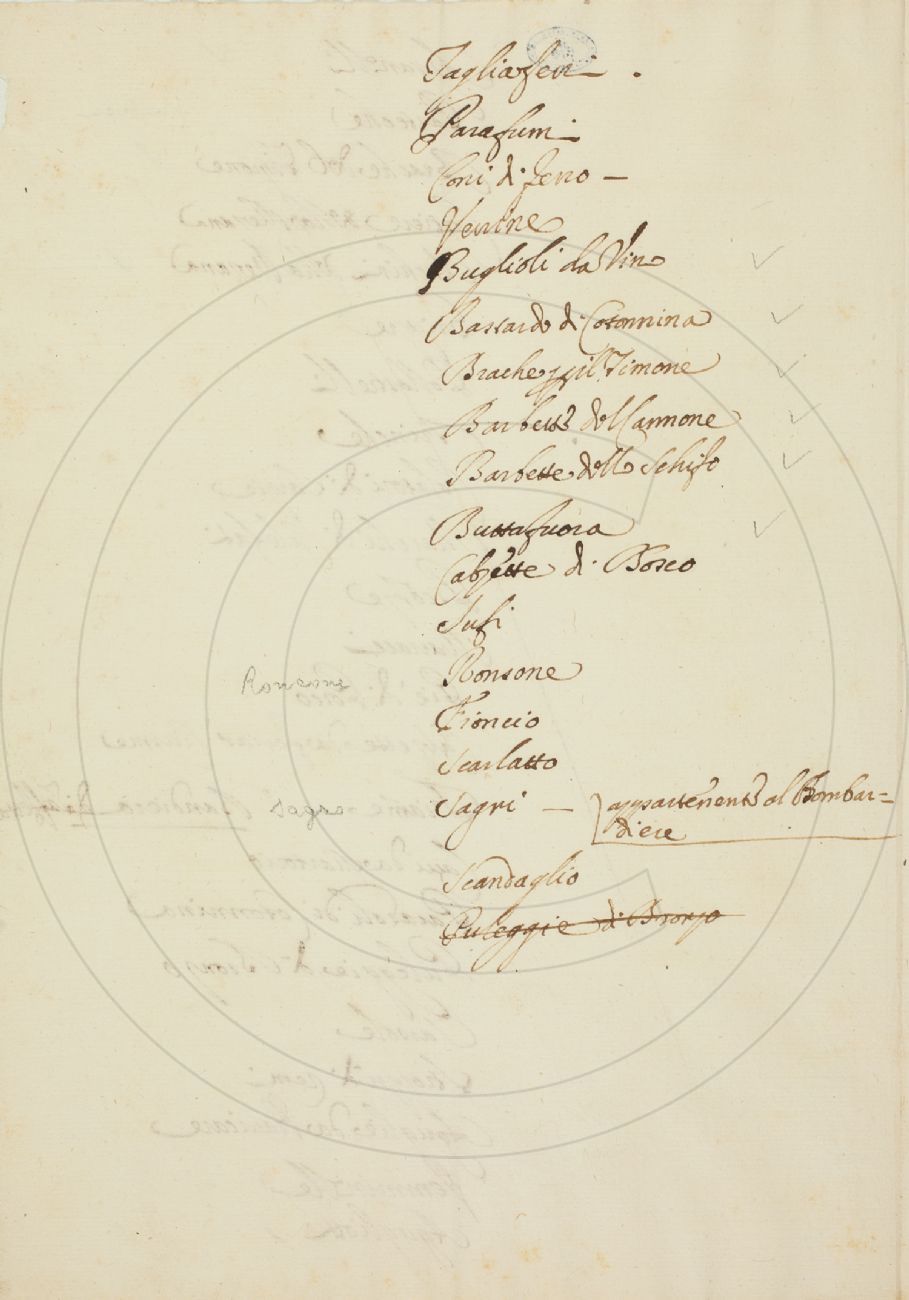 Tagliaferri
Parafumi
Coni di ferro
Ventne
Buglioli da Vino
Bastardo di Cotonnina
Brache p il Timone
Barbette del Cannone
Barbette dello Schifo
Buttafuora
di Bosco
Sufi
Ronsone
Roncone
Fioncio
Scarlatto
Sagri
Sagre
appartenenti al Bombar=
diere
Scandaglio
Puleggie di Bronzo